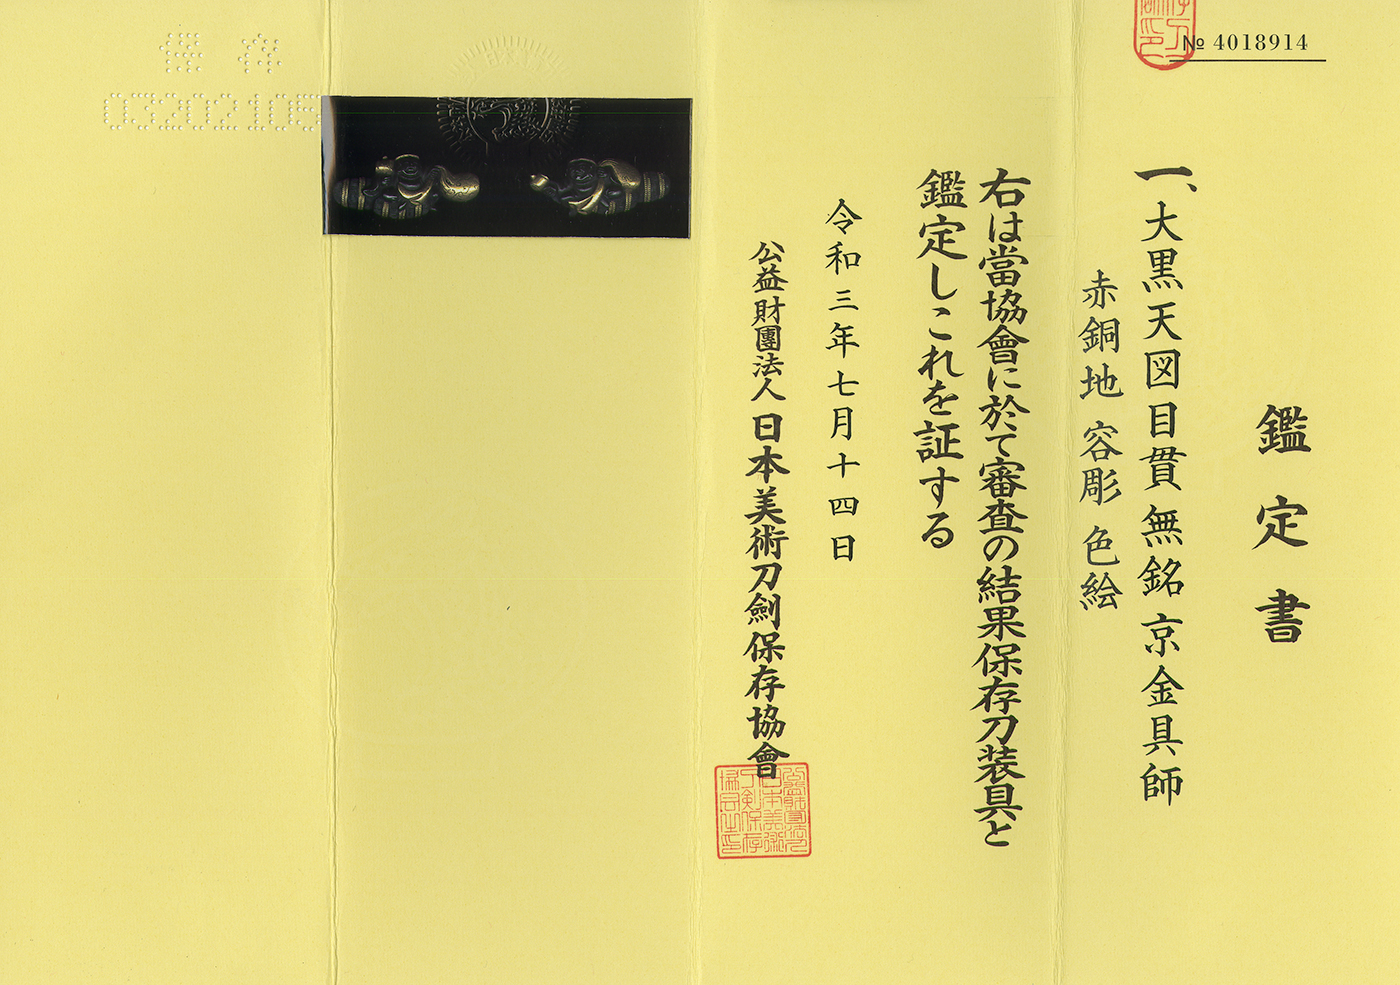 № 4018914
鑑定書
一、大黒天図目貫 無銘 京金具師
赤銅地 容彫 色絵
右は當協會に於て審査の結果保存刀装具と
鑑定しこれを証する
令和三年七月十四日
公益財團法人 日本美術刀劍保存協會
保存
03202105